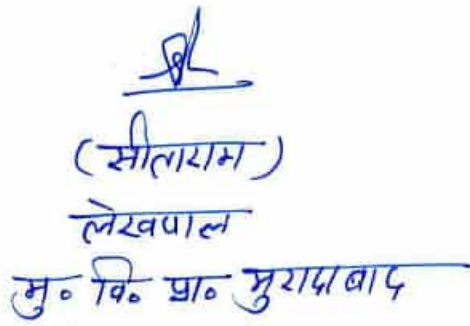 (सीताराम)
लेखपाल
मु० वि० प्रा० मुरादाबाद